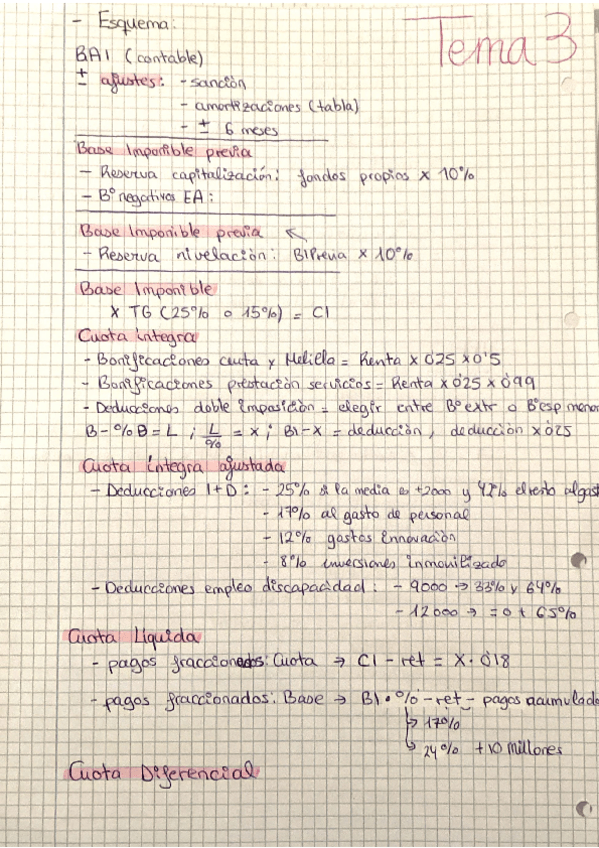 Tema 3
- Esquema:
BAI (contable)
± ajustes: - sanción
- amortizaciones (tabla)
- ± 6 meses
Base Imponible previa
- Reserva capitalización: fondos propios x 10%
- Bº negativos EA:
Base Imponible previa
- Reserva nivelación: BIPrevia x 10%
Base Imponible
x TG (25% o 15%) = CI
Cuota íntegra
- Bonificaciones ceuta y Melilla = Renta x 0'25 x 0'5
- Bonificaciones prestación servicios = Renta x 0'25 x 0'99
- Deducciones doble imposición = elegir entre Bº extr o Bº esp menor
B - % B = L ; L/% = x ; BI - X = deducción, deducción x 0'25
Cuota íntegra ajustada
- Deducciones I+D: - 25% a la media +2000 y 42% el resto
- 17% al gasto de personal
- 12% gastos innovación
- 8% inversiones inmovilizado
- Deducciones empleo discapacidad: - 9000 → 33% y 64%
- 12000 → = o + 65%
Cuota Líquida
- pagos fraccionados: Cuota → CI - ret = X · 0'18
- pagos fraccionados: Base → BI · % - ret - pagos acumulado
↳ 17%
↳ 24% +10 millones
Cuota Diferencial